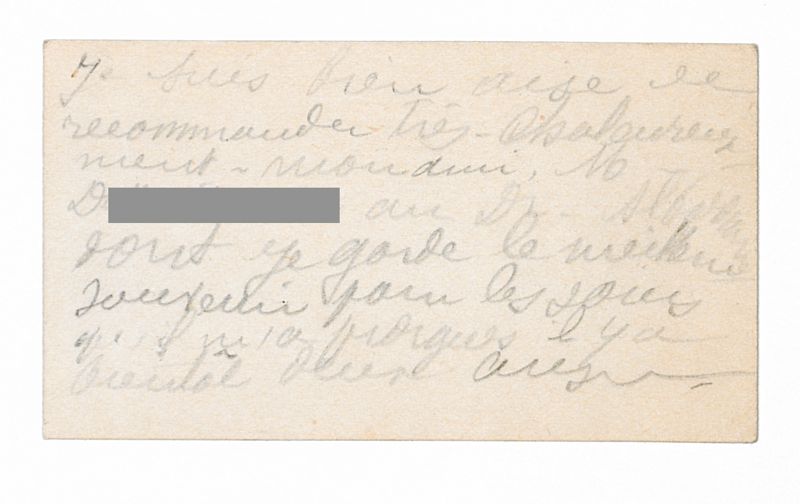 Je suis bien aise de
recommander très-chaleureuse
ment - mon ami, M
D au Dr -
dont je garde le meilleur
souvenir pour les soins
qu'il m'a prodigués il y a
bientôt deux ans -